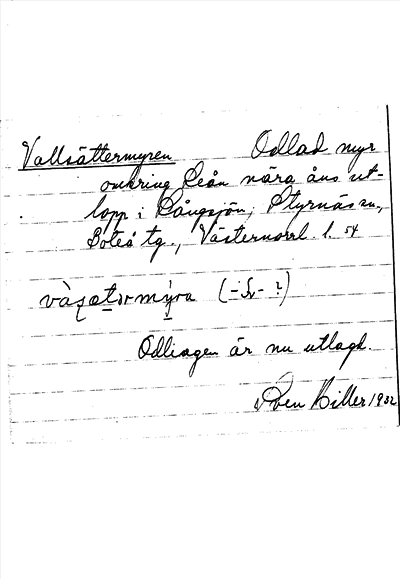 Vallsättermyren Odlad myr
omkring Leån nära åns ut-
lopp i Långsjön, Styrnäs sn,
Boteå tg., Västernorrl. l. 54
(- - ?)
Odlingen är nu utlagd.
Sven Hiller 1932